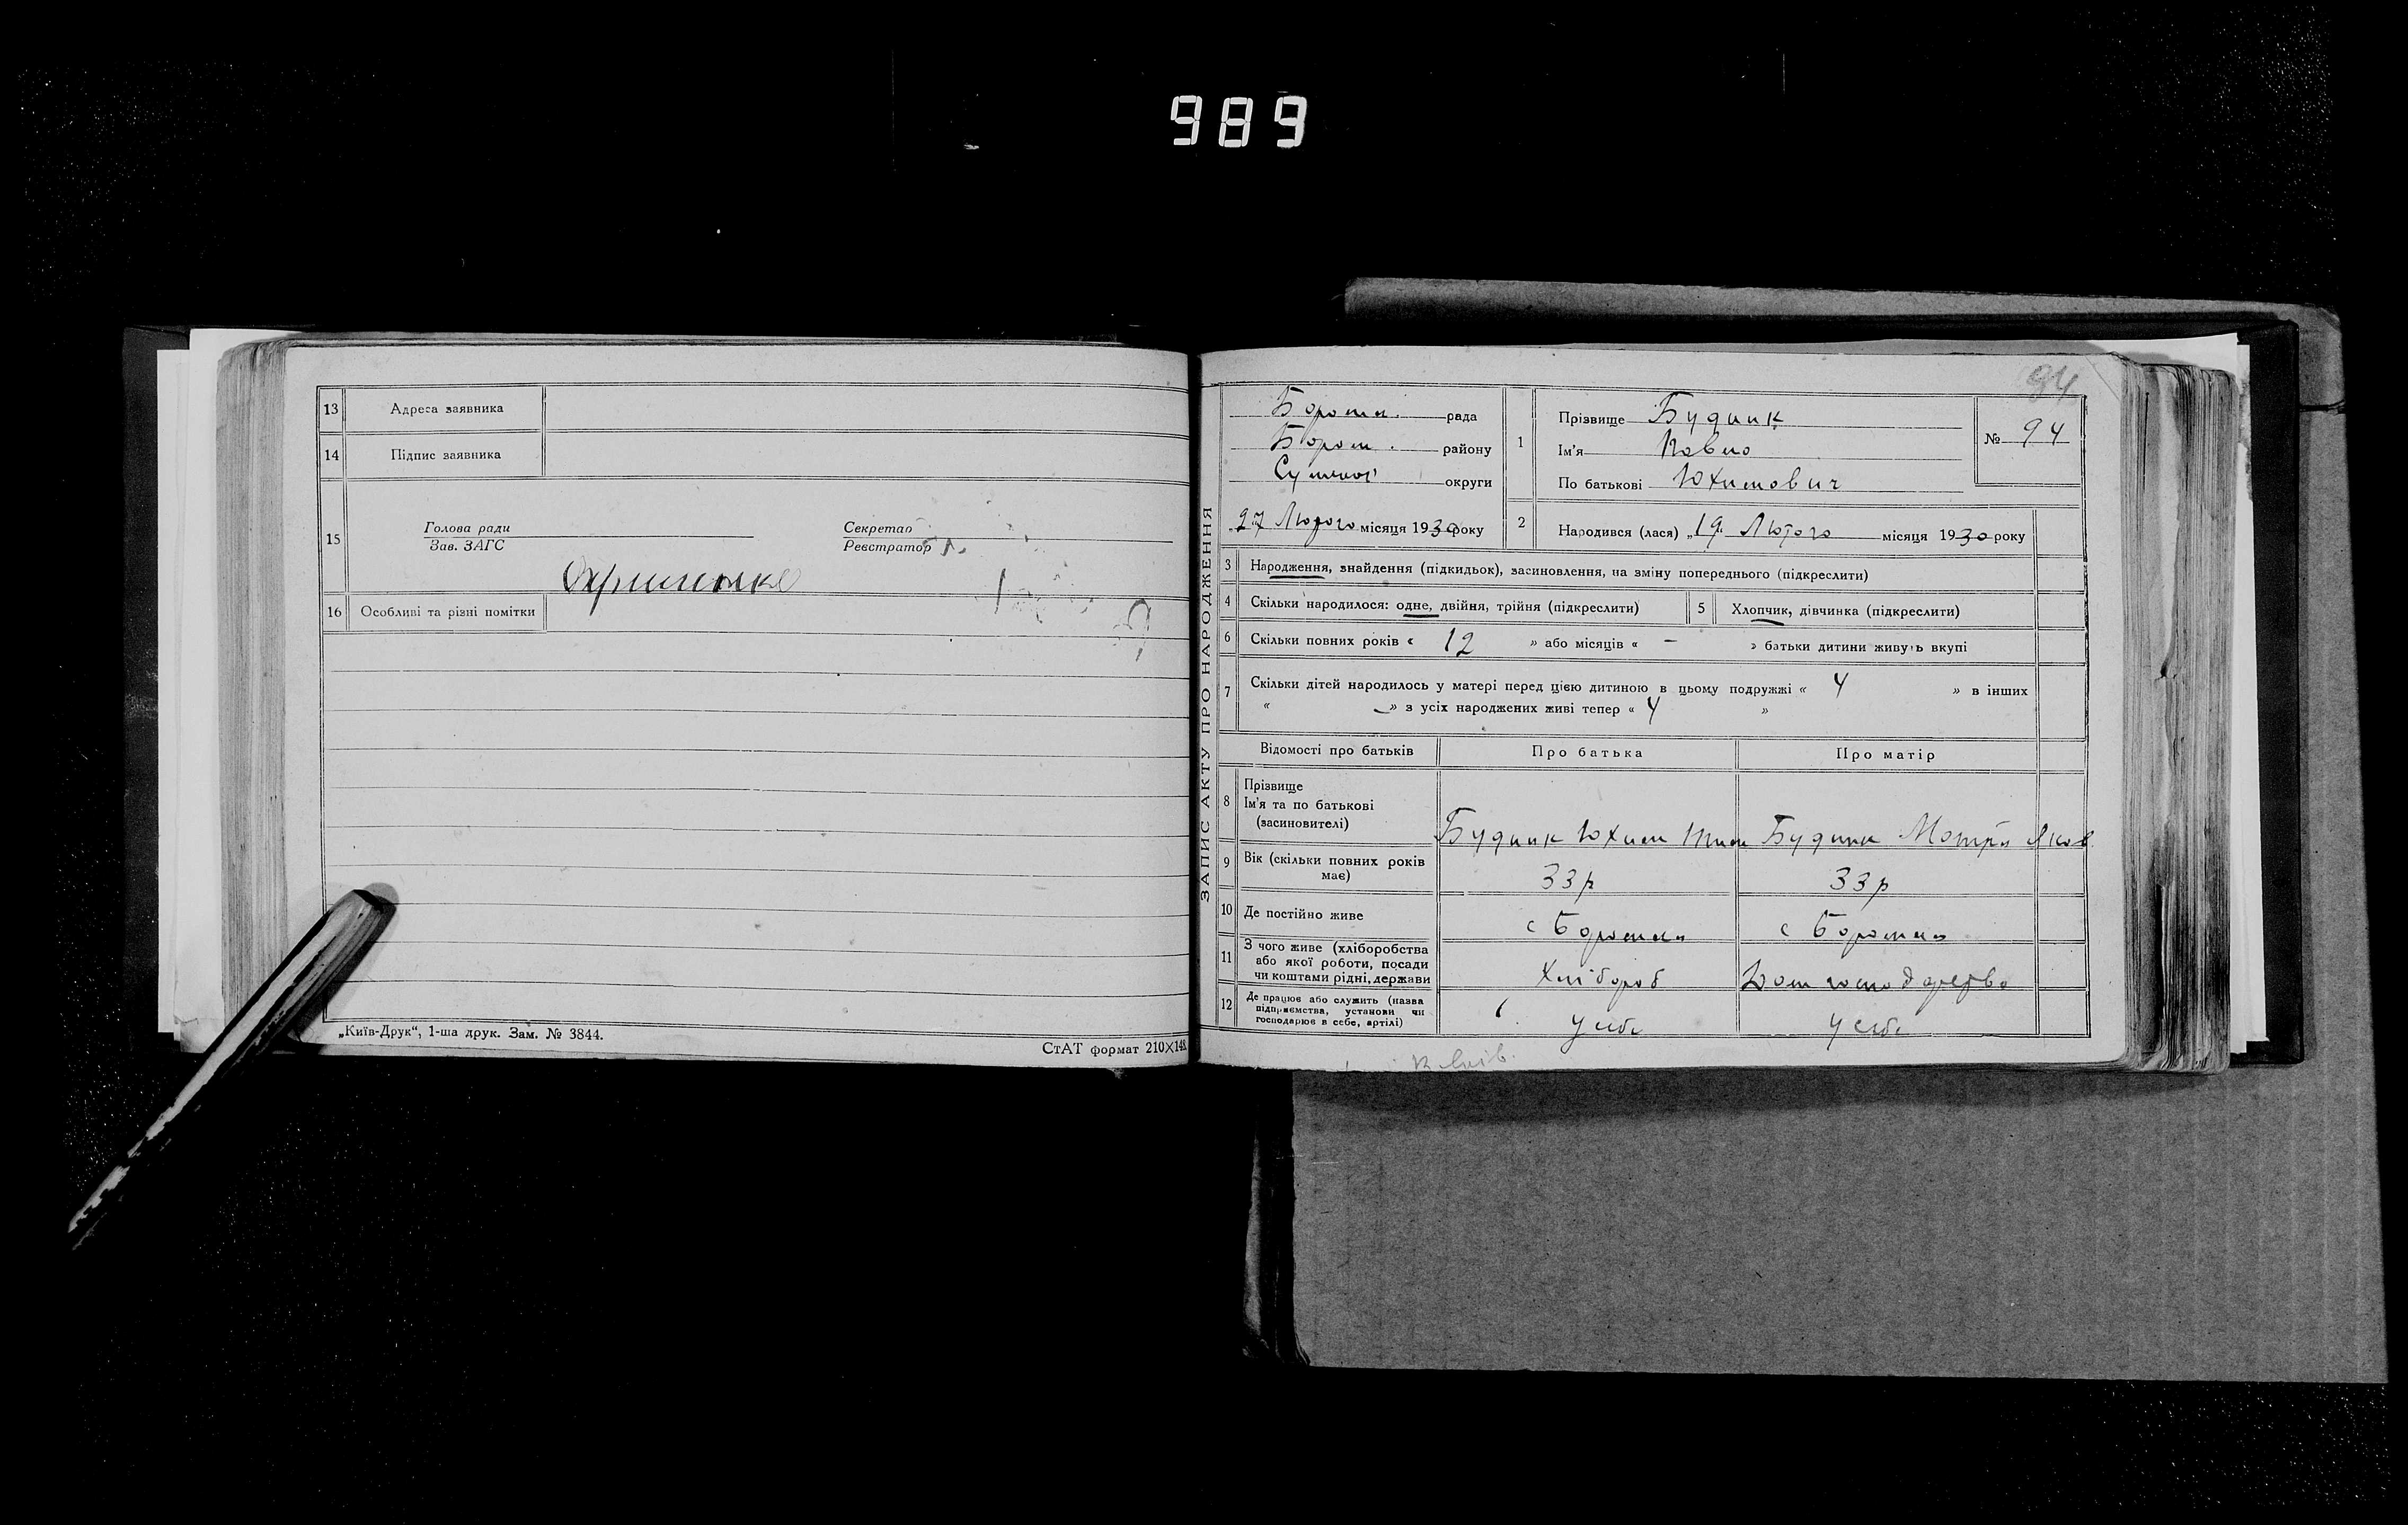 989
13 Адреса заявника
14 Підпис заявника
15 Голова ради
Зав. ЗАГС
Секретар
Реєстратор
16 Особливі та різні помітки
„Київ-Друк“, 1-ша друк. Зам. № 3844.
СтАТ формат 210×148
ЗАПИС АКТУ ПРО НАРОДЖЕННЯ
94
Боромл. рада
Бором. району
Сумської округи
27 Лютого місяця 1930 року
1 Прізвище Будник
Ім'я Павло
По батькові Юхимович
№ 94
2 Народився (лася) „19 Лютого місяця 1930 року
3 Народження, знайдення (підкидьок), засиновлення, на зміну попереднього (підкреслити)
4 Скільки народилося: одне, двійня, трійня (підкреслити)
5 Хлопчик, дівчинка (підкреслити)
6 Скільки повних років « 12 » або місяців « – » батьки дитини живуть вкупі
7 Скільки дітей народилось у матері перед цією дитиною в цьому подружжі « 4 » в інших
« – » з усіх народжених живі тепер « 4 »
Відомості про батьків
Про батька
Про матір
8 Прізвище
Ім'я та по батькові
(засиновителі)
Будник Юхим Тим
Будник Мотря Яков.
9 Вік (скільки повних років
має)
33 р
33 р
10 Де постійно живе
с Боромля
с Боромля
11 З чого живе (хліборобства
або якої роботи, посади
чи коштами рідні, держави
Хлібороб
Дом господарство
12 Де працює або служить (назва
підприємства, установи чи
господарює в себе, артілі)
у себе
у себе